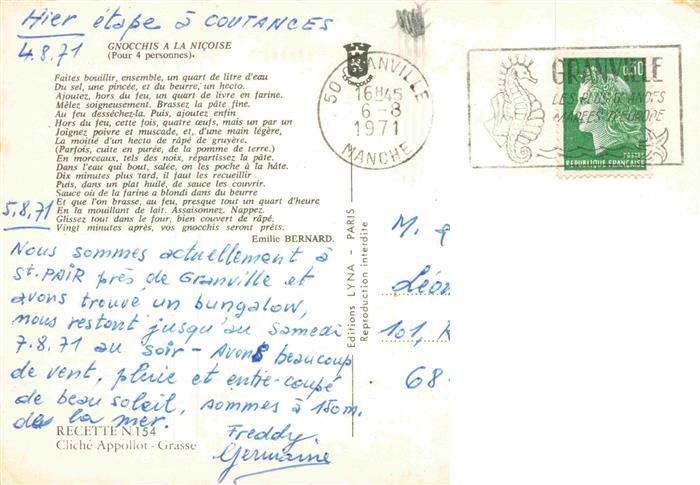 Hier étape à COUTANCES
4.8.71
GNOCCHIS A LA NIÇOISE
(Pour 4 personnes).
Faites bouillir, ensemble, un quart de litre d'eau
Du sel, une pincée, et du beurre, un hecto.
Ajoutez, hors du feu, un quart de livre en farine.
Mêlez soigneusement. Brassez la pâte fine.
Au feu desséchez-la. Puis, ajoutez enfin
Hors du feu, cette fois, quatre œufs, mais un par un
Joignez poivre et muscade, et, d'une main légère,
La moitié d'un hecto de râpé de gruyère.
(Parfois, cuite en purée, de la pomme de terre).
En morceaux, tels des noix, répartissez la pâte.
Dans l'eau qui bout, salée, on les poche à la hâte.
Dix minutes plus tard, il faut les recueillir.
Puis, dans un plat huilé, de sauce les couvrir.
Sauce où de la farine a blondi dans du beurre
Et que l'on brasse, au feu, presque tout un quart d'heure
En la mouillant de lait. Assaisonnez. Nappez.
Glissez tout dans le four, bien couvert de râpé.
Vingt minutes après, vos gnocchis seront prêts.
Emilie BERNARD.
5.8.71
Nous sommes actuellement à
St. PAIR près de Granville et
avons trouvé un bungalow,
nous restont jusqu'au Samedi
7.8.71 au soir - Avons beaucoup
de vent, pluie et entre-coupé
de beau soleil, sommes à 150m.
de la mer.
Freddy
Germaine
RECETTE N 154
Cliché Appollot - Grasse
LYNACOLOR
Editions LYNA - PARIS
Reproduction interdite
50 GRANVILLE
16H45
6-8
1971
MANCHE
GRANVILLE
LES PLUS GRANDES
MAREES D'EUROPE
0,30
POSTES
REPUBLIQUE FRANÇAISE
M.
Léon
101,
68-